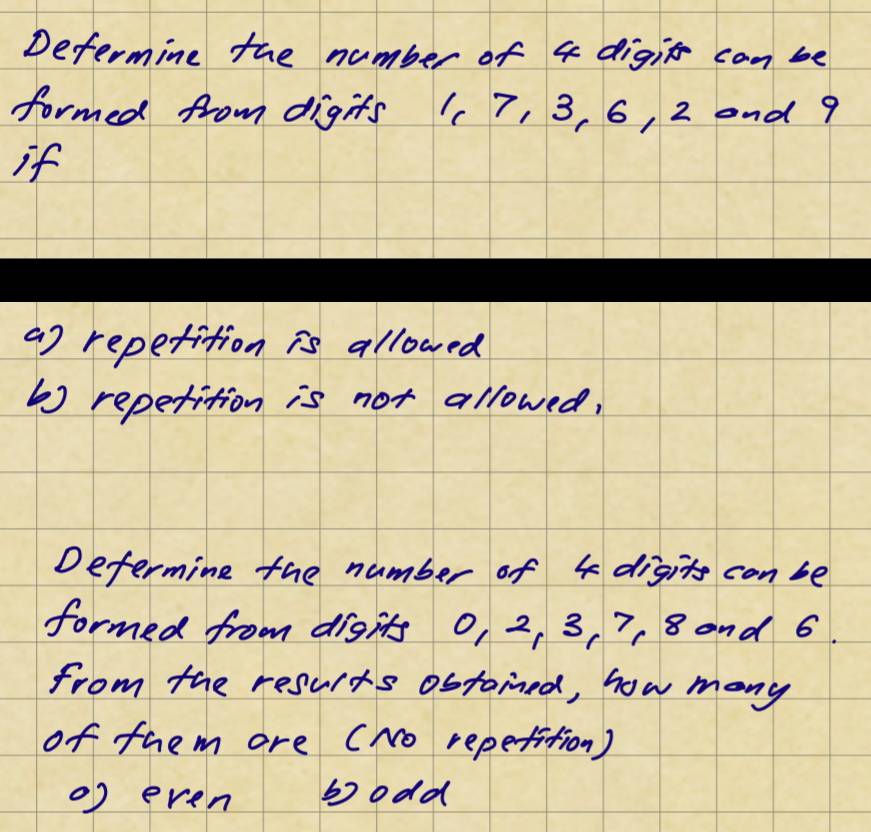 Determine the number of 4 digits can be
formed from digits 1, 7, 3, 6, 2 and 9
if
a) repetition is allowed
b) repetition is not allowed.
Determine the number of 4 digits can be
formed from digits 0, 2, 3, 7, 8 and 6.
From the results obtained, how many
of them are (No repetition)
a) even b) odd